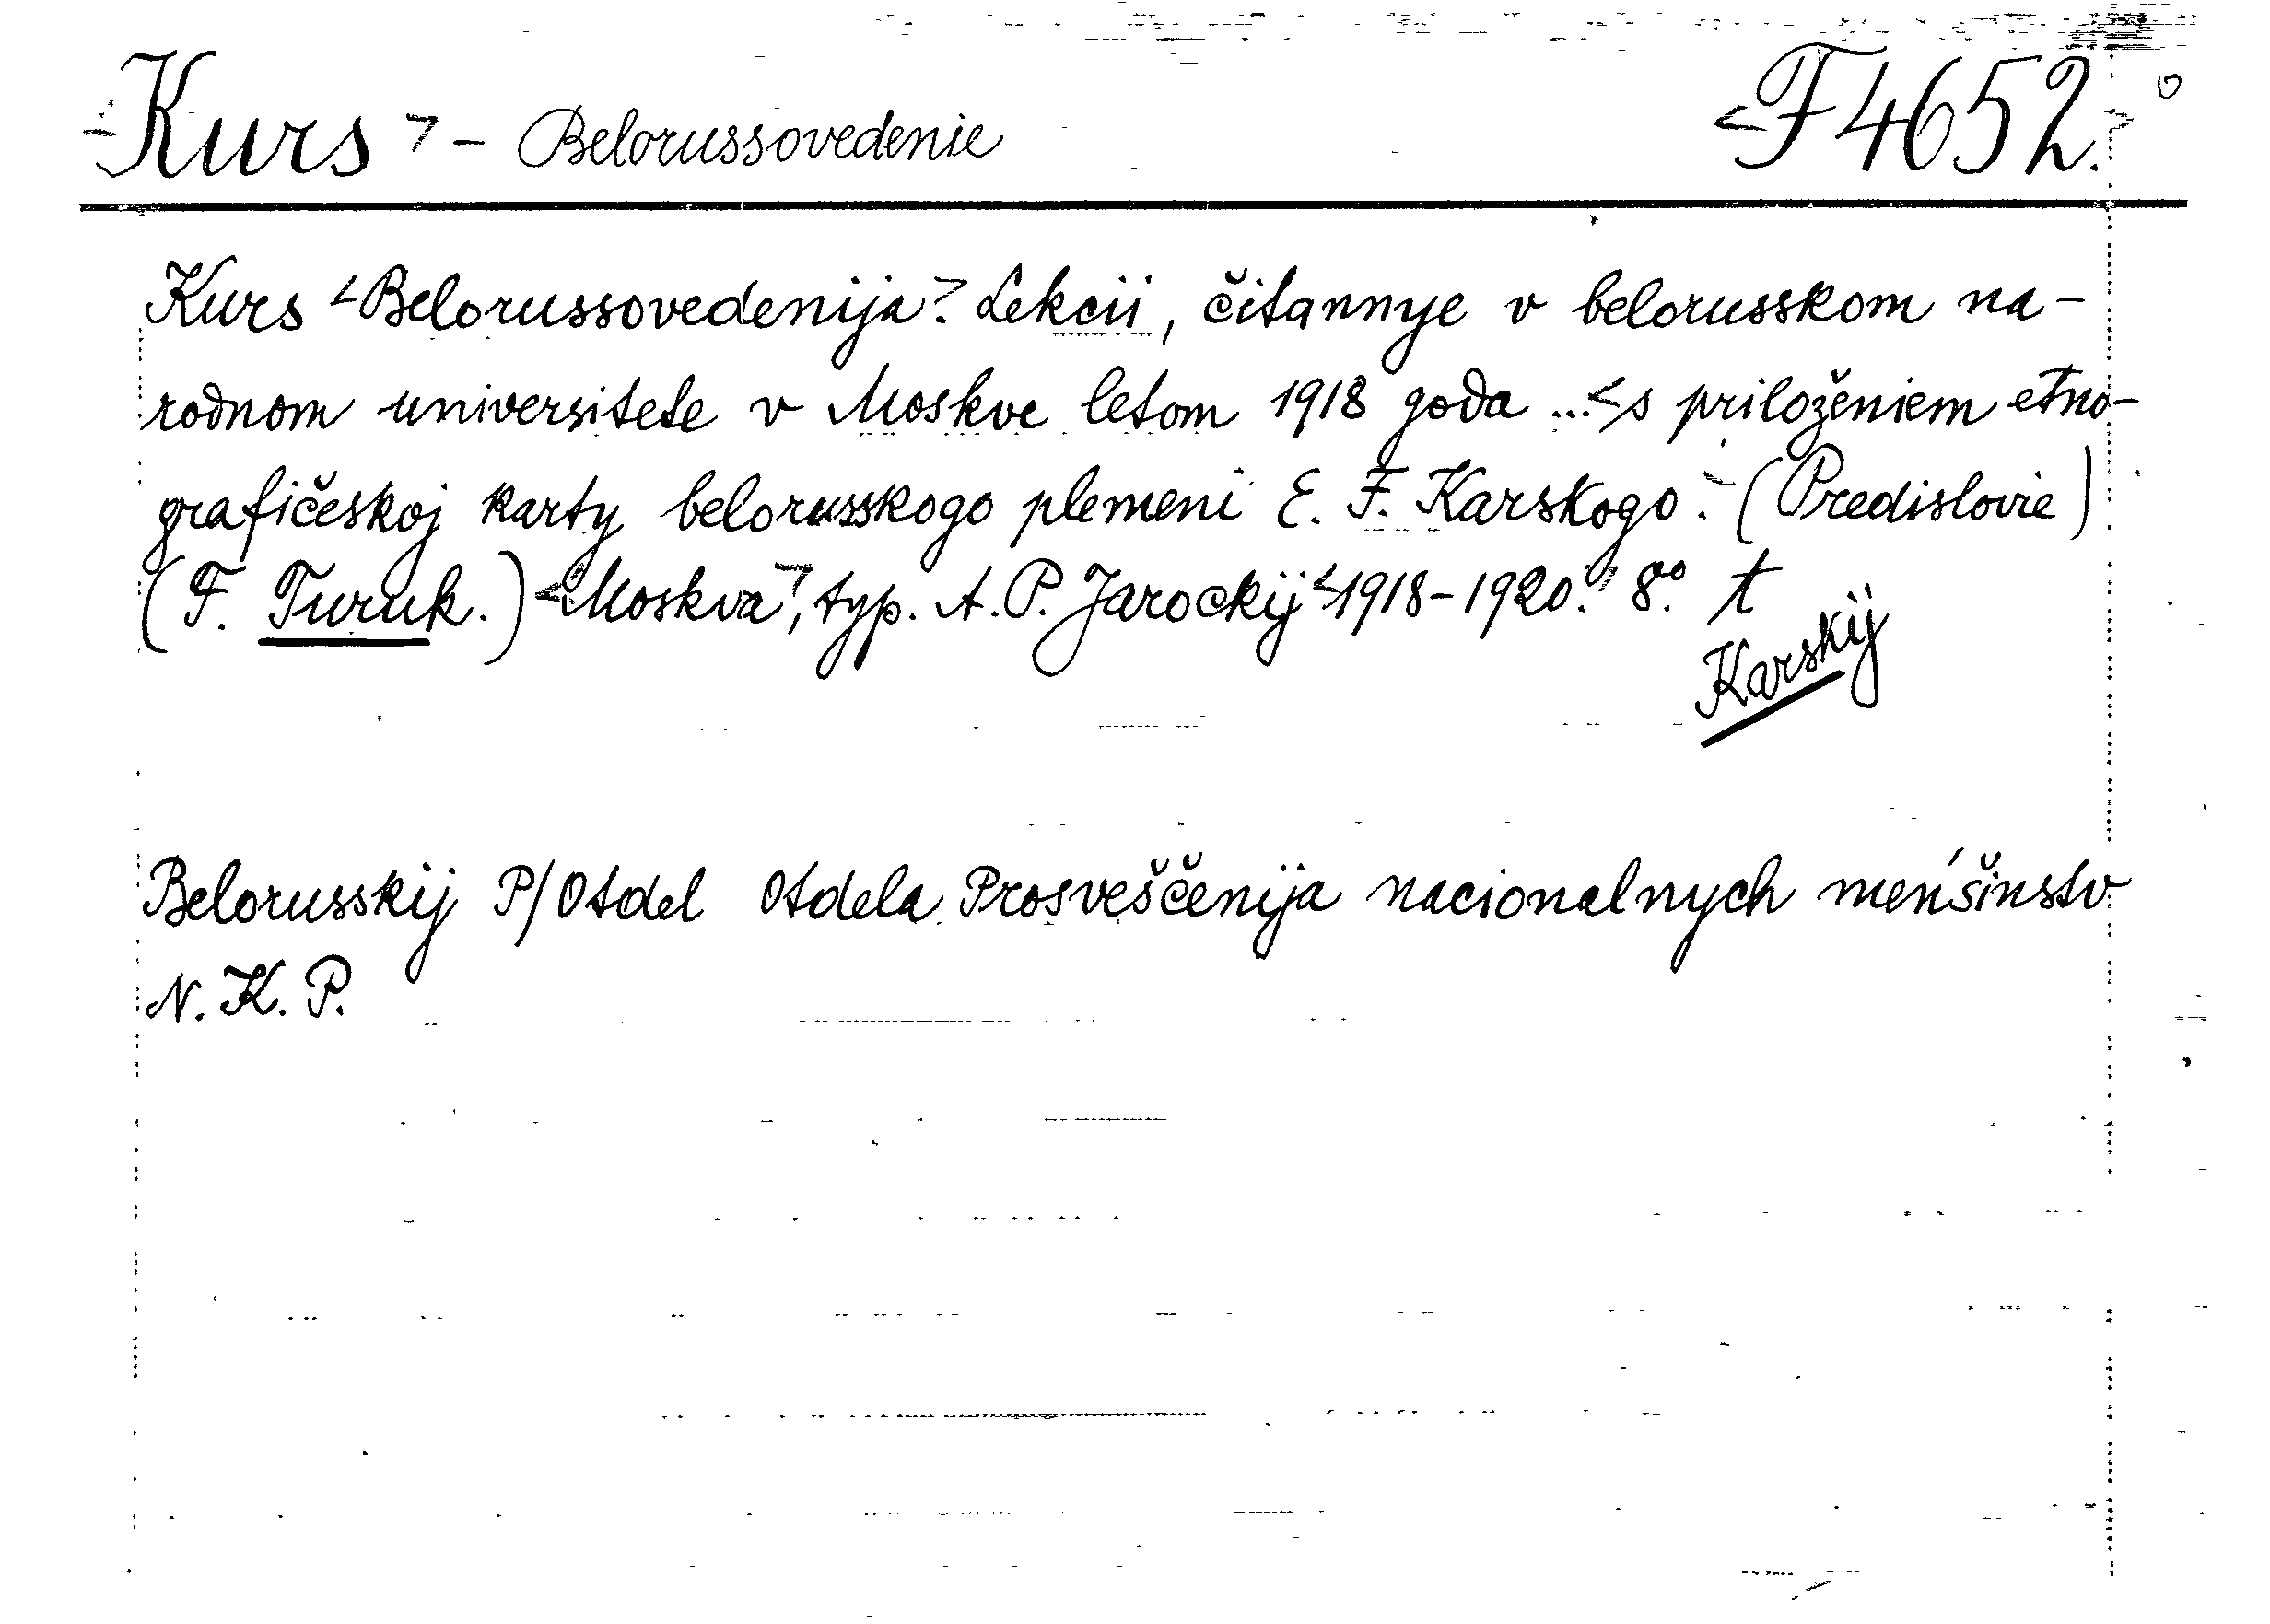 <Kurs> - Belorussovedenie <F 4652.>
Kurs <Belorussovedenija>. Lekcii, čitannye v belorusskom na-
rodnom universitete v Moskve letom 1918 goda ... <s priloženiem etno-
grafičeskoj karty belorusskogo plemeni E. F. Karskogo.> (Predislovie)
(F. Turuk.) <Moskva>, typ. A. P. Jarockij <1918-1920.> 8vo. t
Karskij
Belorusskij P/Otdel Otdela Prosveščenija nacionalnych meńšinstv
N. K. P.